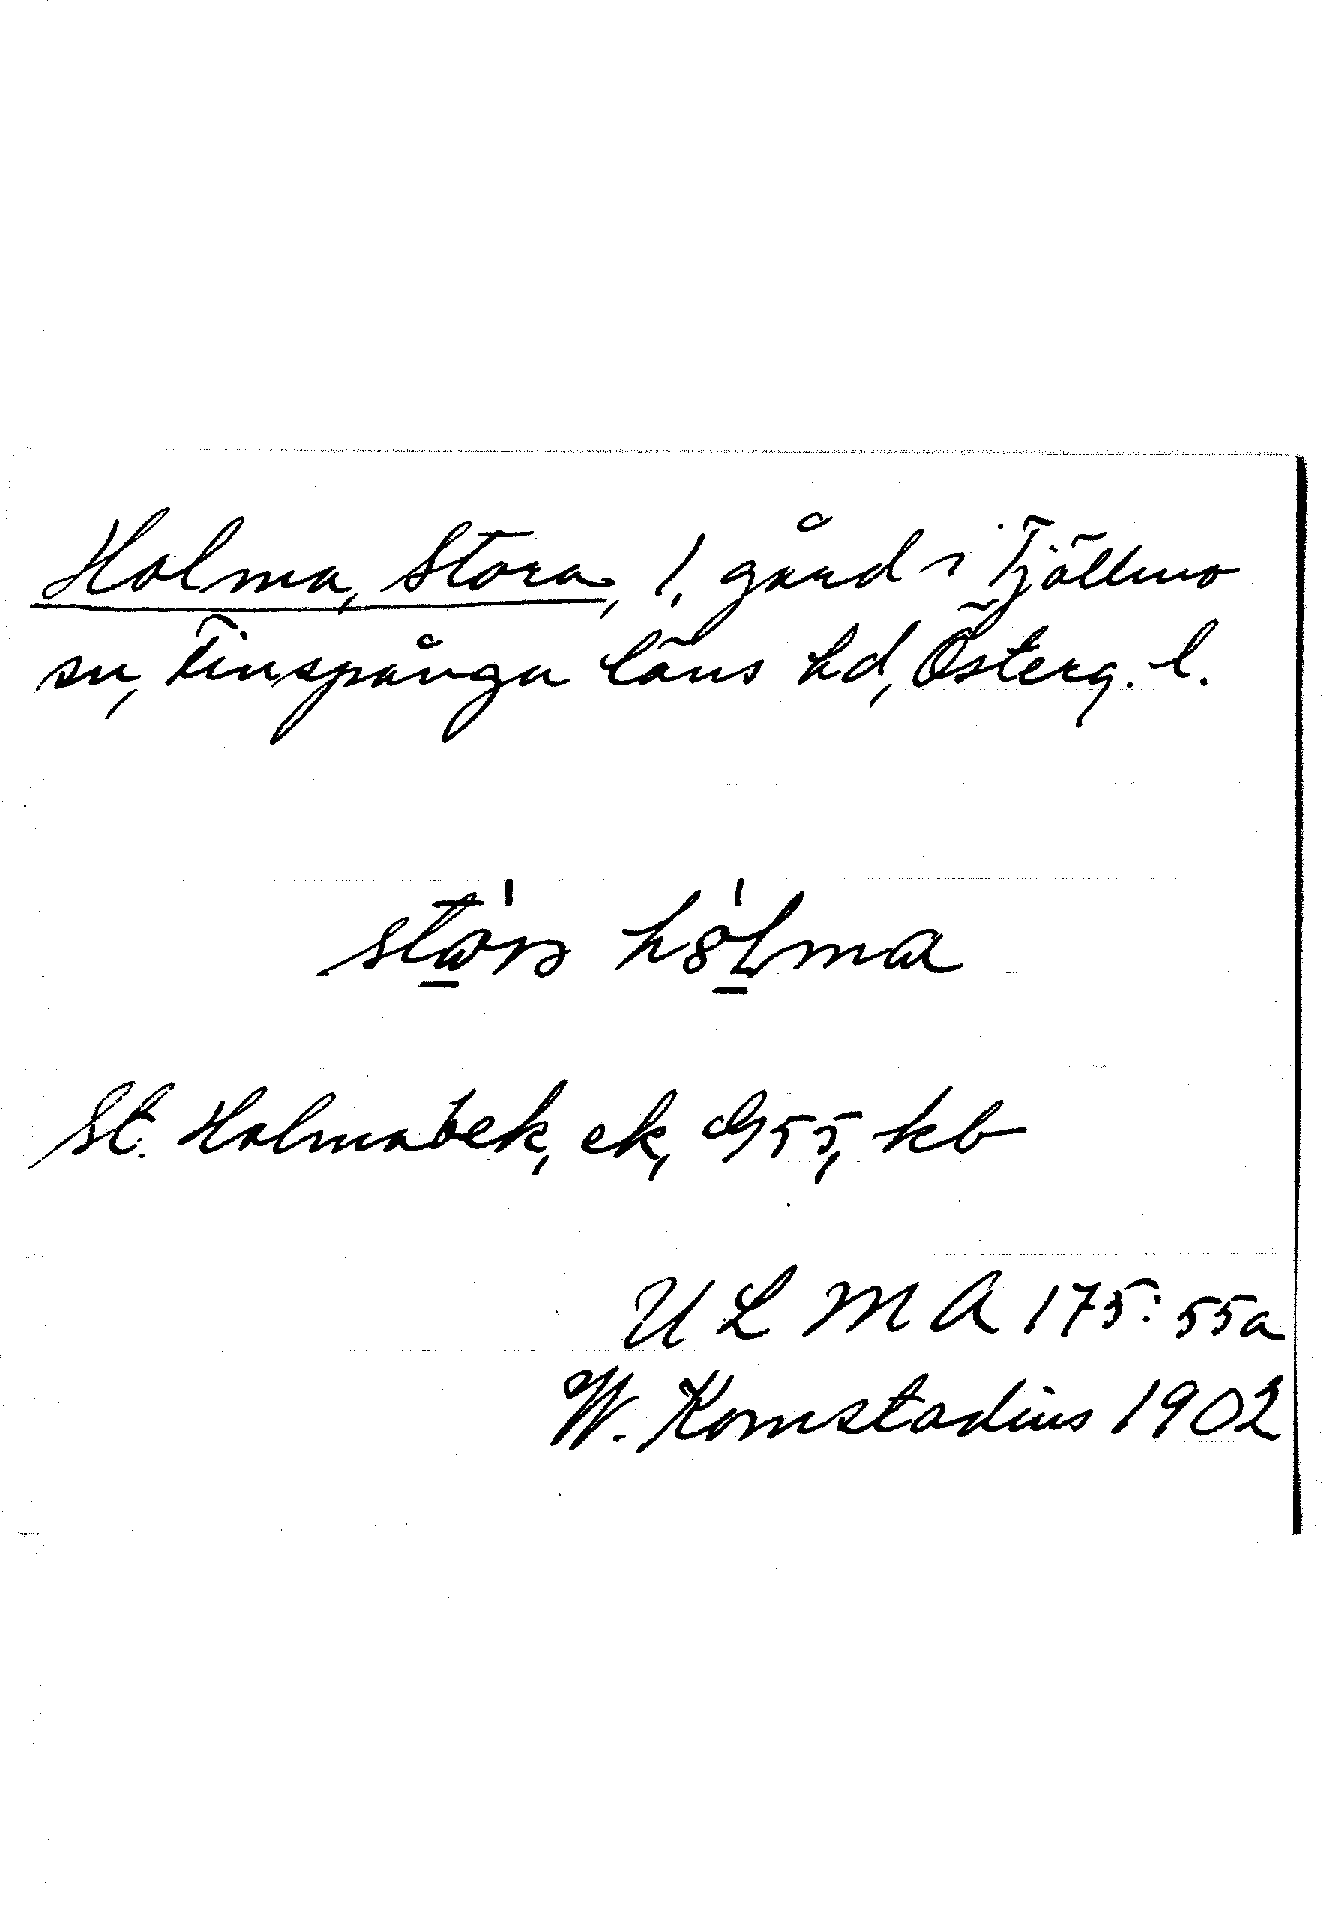 Holma, Stora, 1, gård i Tjällmo
sn, Finspånga läns hd, Österg. l.
St. Holmabek, ek, G55, kb
ULMA 175:55a
W. Komstadius 1902